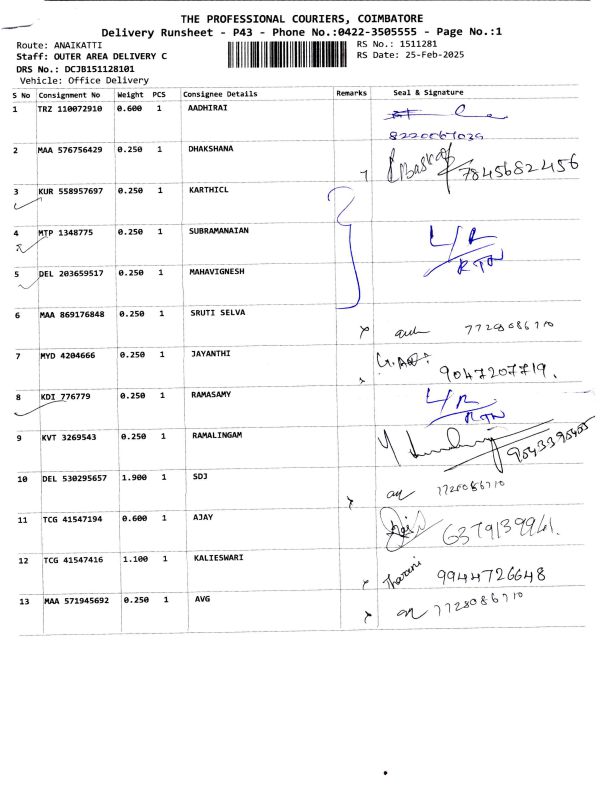 THE PROFESSIONAL COURIERS, COIMBATORE
Delivery Runsheet - P43 - Phone No.:0422-3505555 - Page No.:1
Route: ANAIKATTI RS No.: 1511281
Staff: OUTER AREA DELIVERY C RS Date: 25-Feb-2025
DRS No.: DCJB151128101
Vehicle: Office Delivery
S No Consignment No Weight PCS Consignee Details Remarks Seal & Signature
1 TRZ 110072910 0.600 1 AADHIRAI
2 MAA 576756429 0.250 1 DHAKSHANA 7845682456
3 KUR 558957697 0.250 1 KARTHICL
4 MTP 1348775 0.250 1 SUBRAMANAIAN L/R
RTN
5 DEL 203659517 0.250 1 MAHAVIGNESH
6 MAA 869176848 0.250 1 SRUTI SELVA 7728086710
7 MYD 4204666 0.250 1 JAYANTHI 9047207719.
8 KDI 776779 0.250 1 RAMASAMY L/R
RTN
9 KVT 3269543 0.250 1 RAMALINGAM
10 DEL 530295657 1.900 1 SDJ 7728086710
11 TCG 41547194 0.600 1 AJAY 6379139961.
12 TCG 41547416 1.100 1 KALIESWARI Tharani 9944726648
13 MAA 571945692 0.250 1 AVG 7728086710